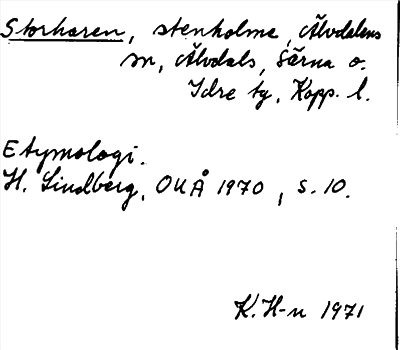 Storharen, stenholme, Älvdalens
sn, Älvdals, Särna o.
Idre tg, Kopp. l.
Etymologi.
H. Lindberg, OUÅ 1970, s. 10.
K. H-n 1971